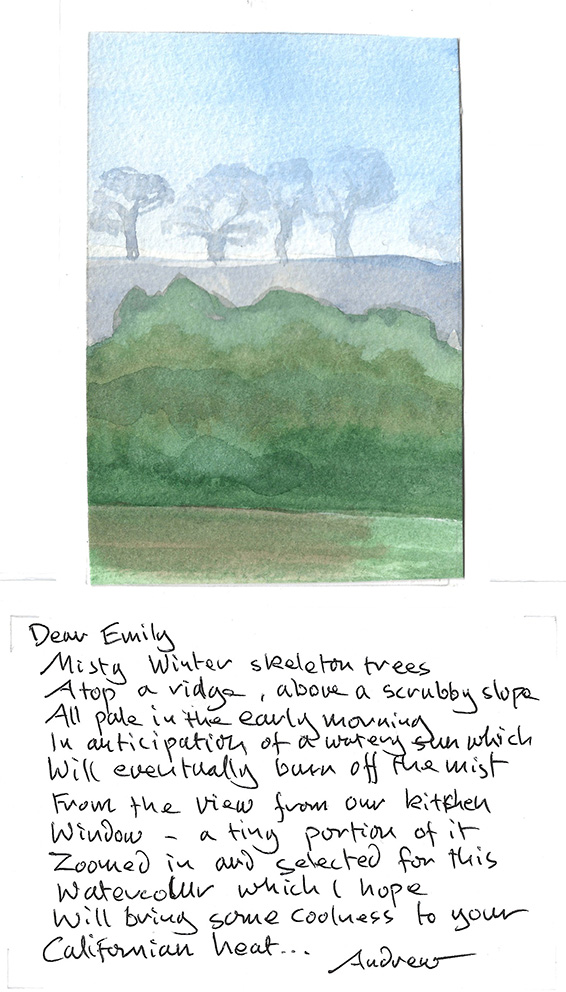 Dear Emily
Misty Winter skeleton trees
Atop a ridge, above a scrubby slope
All pale in the early morning
In anticipation of a watery sun which
Will eventually burn off the mist
From the view from our kitchen
Window - a tiny portion of it
Zoomed in and selected for this
Watercolur which I hope
Will bring some coolness to your
Californian heat...
Andrew